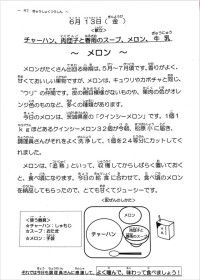 6月13日(金)
チャーハン、肉団子と春雨のスープ、メロン、牛乳
～ メロン ～
メロンがたくさん出回る時期は、5月～7月頃です。香りがよく、
甘くておいしい果物ですが、メロンは、キュウリやカボチャと同じ、
"ウリ"の仲間です。皮の模様がないものや、果肉の色がオレン
ジ色のものなど、多くの種類があります。
今日のメロンは、茨城産の「クインシーメロン」です。1個1
kgほどあるクインシーメロン32個が今朝、松原小に届き、
調理員さんがそれぞれを洗浄し、1個を24等分にカットしてくれ
ました。
メロンは、「追熟」といって、収穫してからしばらく置いておく
と、食べ頃になります。今日の給食に合わせて、食べ頃のメロン
を納品してもらったので、とても甘くてジューシーです。
<使う食器>
☆チャーハン：しゃもじ
☆スープ：おたま
☆メロン：手袋
<配ぜんのしかた>
メロン
チャーハン
肉団子と
春雨の
スープ
それでは今日も調理員さんに感謝して、よく噛んで、味わって食べましょう！